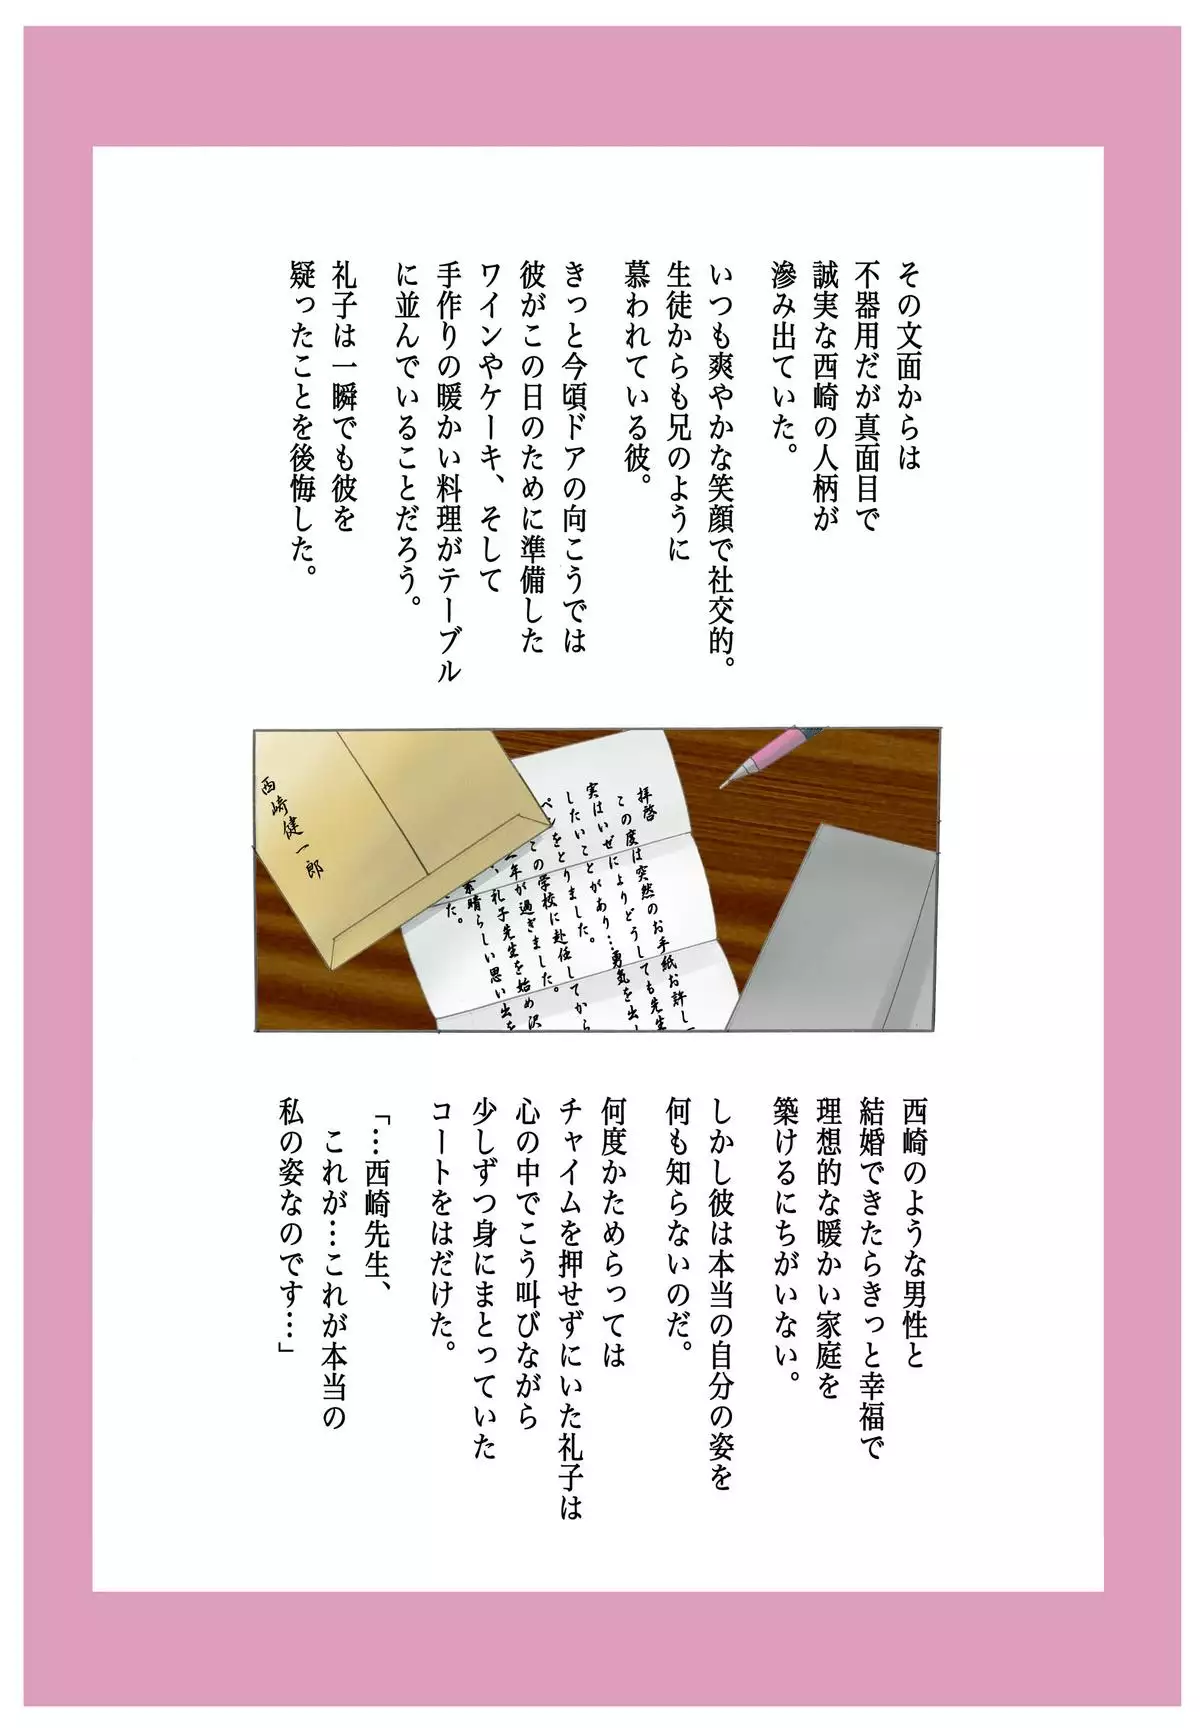 その文面からは
不器用だが真面目で
誠実な西崎の人柄が
滲み出ていた。
いつも爽やかな笑顔で社交的。
生徒からも兄のように
慕われている彼。
きっと今頃ドアの向こうでは
彼がこの日のために準備した
ワインやケーキ、そして
手作りの暖かい料理がテーブル
に並んでいることだろう。
礼子は一瞬でも彼を
疑ったことを後悔した。
拝啓
この度は突然のお手紙お許し
実はいぜによりどうしても先生
したいことがあり…勇気を出し
ペンをとりました。
この学校に赴任してから
年が過ぎました。
、礼子先生を始め沢
素晴らしい思い出を
した。
西崎健一郎
西崎のような男性と
結婚できたらきっと幸福で
理想的な暖かい家庭を
築けるにちがいない。
しかし彼は本当の自分の姿を
何も知らないのだ。
何度かためらっては
チャイムを押せずにいた礼子は
心の中でこう叫びながら
少しずつ身にまとっていた
コートをはだけた。
「…西崎先生、
これが…これが本当の
私の姿なのです…」